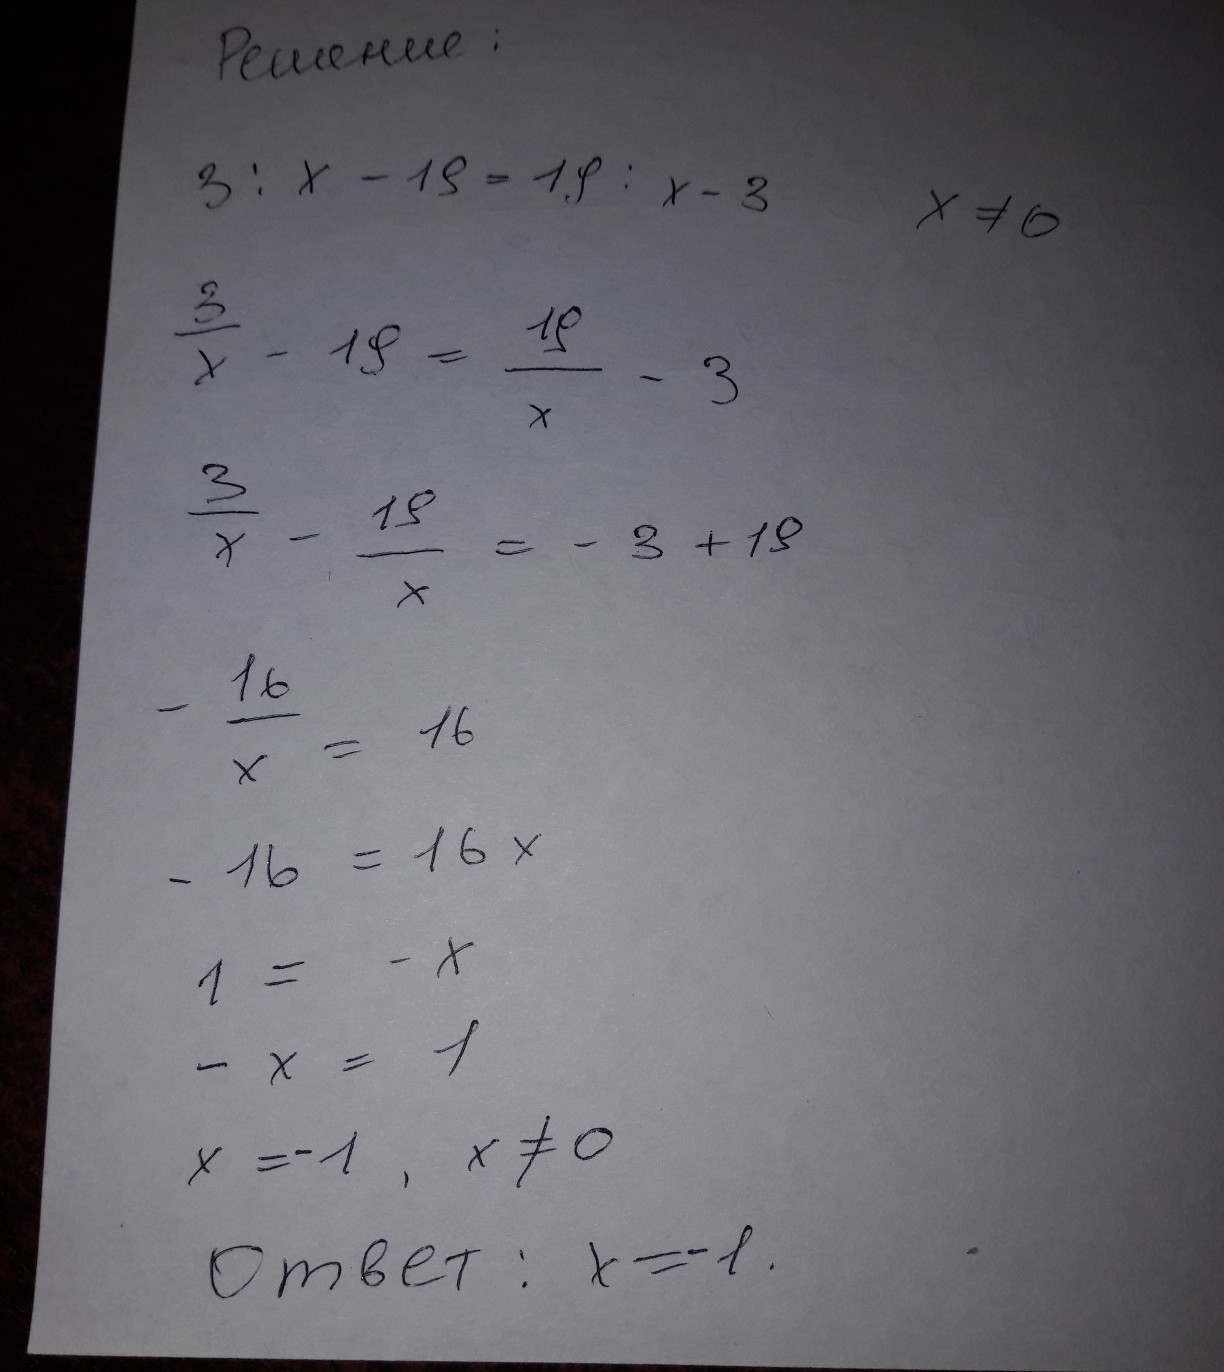 Решение:
3 : x - 19 = 19 : x - 3 x ≠ 0
3/x - 19 = 19/x - 3
3/x - 19/x = - 3 + 19
- 16/x = 16
- 16 = 16 x
1 = - x
- x = 1
x = -1 , x ≠ 0
Ответ : x = -1.